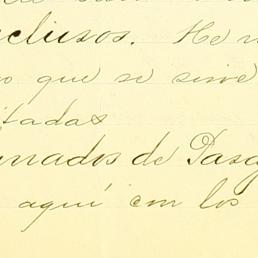 clusos. He
o que se sirve
itadas
nados de Pasa
aquí con los